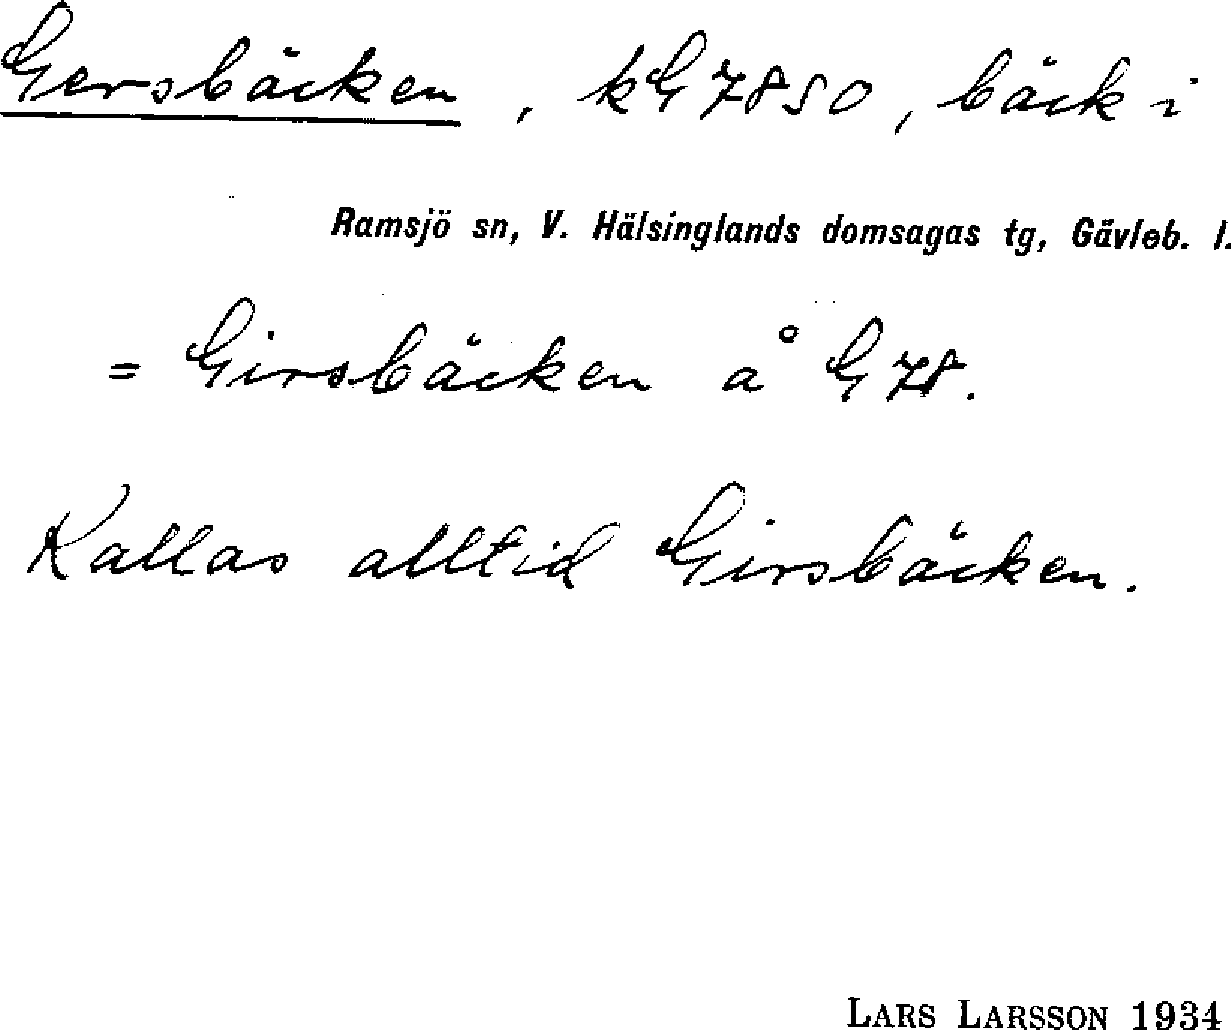 Gersbäcken, kG78SO, bäck i
Ramsjö sn, V. Hälsinglands domsagas tg, Gävleb. l.
= Girsbäcken å G78.
Kallas alltid Girsbäcken.
LARS LARSSON 1934